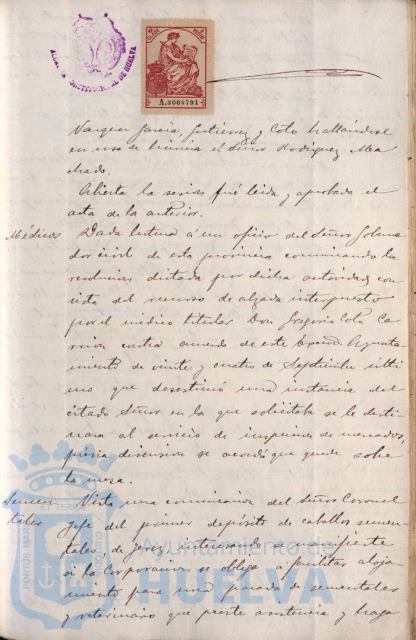 ALCALDIA CONSTITUCIONAL DE HUELVA
A.3064791
Vazquez Garcia, Gutierrez y Coto hallándose
en uso de licencia el Señor Rodriguez Ma
chado.
Abierta la sesion fué leida y aprobada el
acta de la anterior.
Médicos
Dada lectura á un oficio del Señor Goberna
dor civil de esta provincia comunicando la
resolucion dictada por dicha autoridad, con
vista del recurso de alzada interpuesto
por el médico titular Don Gregorio Coto Ca
rrion contra acuerdo de este Excmo. Ayunta
miento de veinte y cuatro de Septiembre últi
mo que desestimó una instancia del
citado Señor en la que solicitaba se le desti
nara al servicio de mercados,
prévia discusion se acordó que quede sobre
la mesa.
Semen
tales
Vista una comunicacion del Señor Coronel
Jefe del primer depósito de caballos semen
tales de Jerez, interesando se manifieste
si la Corporacion se obliga á facilitar aloja
miento para una parada de sementales
y veterinario que preste asistencia y haga
PORTUS MARIS ET TERRAE CUSTODIA
Ayuntamiento de
HUELVA